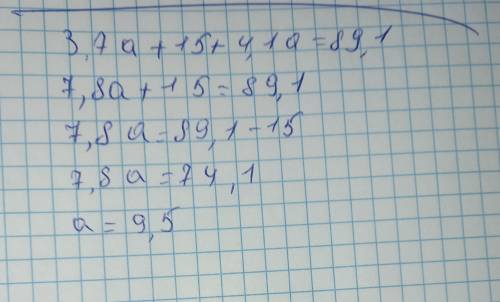 3,7a+15+4,1a=89,1
7,8a+15=89,1
7,8a=89,1-15
7,8a=74,1
a=9,5